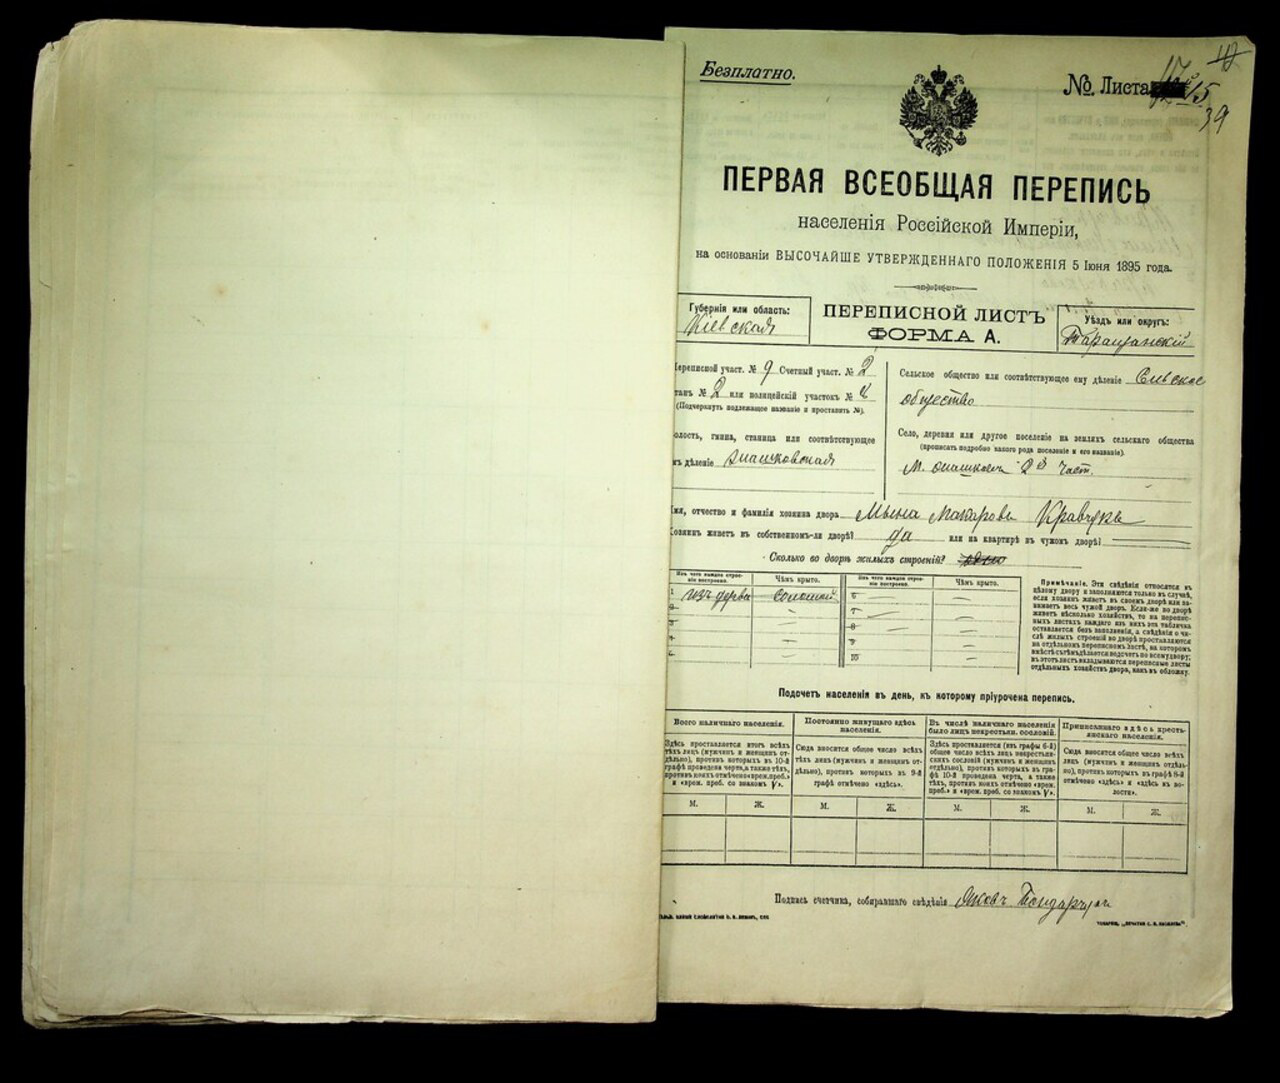 Безплатно.
№ Листа 15
39
ПЕРВАЯ ВСЕОБЩАЯ ПЕРЕПИСЬ
населенія Россійской Имперіи,
на основаніи ВЫСОЧАЙШЕ УТВЕРЖДЕННАГО ПОЛОЖЕНІЯ 5 Іюня 1895 года.
Губернія или область:
Кіевская
ПЕРЕПИСНОЙ ЛИСТЪ
ФОРМА А.
Уѣздъ или округъ:
Таращанскій
Переписной участ. № 9 Счетный участ. № 2
танъ № 2 или полицейскій участокъ №
(Подчеркнуть надлежащее названіе и проставить №).
олость, гмина, станица или соотвѣтствующее
имъ дѣленіе
Сельское общество или соотвѣтствующее ему дѣленіе
общество
Село, деревня или другое поселеніе на земляхъ сельскаго общества
(прописать подробно какого рода поселеніе и его названіе).
м. 2я част.
Имя, отчество и фамилія хозяина двора Макаровъ Кравчукъ
Хозяинъ живетъ въ собственномъ-ли дворѣ? да или на квартирѣ въ чужомъ дворѣ?
Сколько во дворѣ жилыхъ строеній?
Изъ чего каждое строеніе построено.
Чѣмъ крыто.
Изъ чего каждое строеніе построено.
Чѣмъ крыто.
1 изъ дерева соломой
6
2
7
3
8
4
9
5
10
Примѣчаніе. Эти свѣдѣнія относятся къ
цѣлому двору и заполняются только въ случаѣ,
если хозяинъ живетъ въ своемъ дворѣ или за-
нимаетъ весь чужой дворъ. Если-же во дворѣ
живетъ нѣсколько хозяйствъ, то на перепис-
ныхъ листахъ каждаго изъ нихъ эта табличка
оставляется безъ заполненія, а свѣдѣнія о чи-
слѣ жилыхъ строеній во дворѣ проставляются
на отдѣльномъ переписномъ листѣ, на которомъ
вмѣстѣ съ тѣмъ дѣлается подсчетъ по всему двору;
въ этотъ листъ вкладываются переписные листы
отдѣльныхъ хозяйствъ двора, какъ въ обложку.
Подсчетъ населенія въ день, къ которому пріурочена перепись.
Всего наличнаго населенія.
Здѣсь проставляется итогъ всѣхъ
тѣхъ лицъ (мужчинъ и женщинъ от-
дѣльно), противъ которыхъ въ 10-й
графѣ проведена черта, а также тѣхъ,
противъ коихъ отмѣчено «врем. преб.»
и «врем. преб. со знакомъ V».
Постоянно живущаго здѣсь
населенія.
Сюда вносится общее число всѣхъ
тѣхъ лицъ (мужчинъ и женщинъ от-
дѣльно), противъ которыхъ въ 9-й
графѣ отмѣчено «здѣсь».
Въ числѣ наличнаго населенія
было лицъ некрестьян. сословій.
Здѣсь проставляется (изъ графы 6-й)
общее число всѣхъ лицъ некрестьян-
скихъ сословій (мужчинъ и женщинъ
отдѣльно), противъ которыхъ въ гра-
фѣ 10-й проведена черта, а также
тѣхъ, противъ коихъ отмѣчено «врем.
преб.» и «врем. преб. со знакомъ V».
Приписаннаго здѣсь кресть-
янскаго населенія.
Сюда вносится общее число всѣхъ
лицъ (мужчинъ и женщинъ отдѣль-
но), противъ которыхъ въ графѣ 8-й
отмѣчено «здѣсь» и «здѣсь въ во-
лости».
М. Ж. М. Ж. М. Ж. М. Ж.
Подпись счетчика, собиравшаго свѣдѣнія